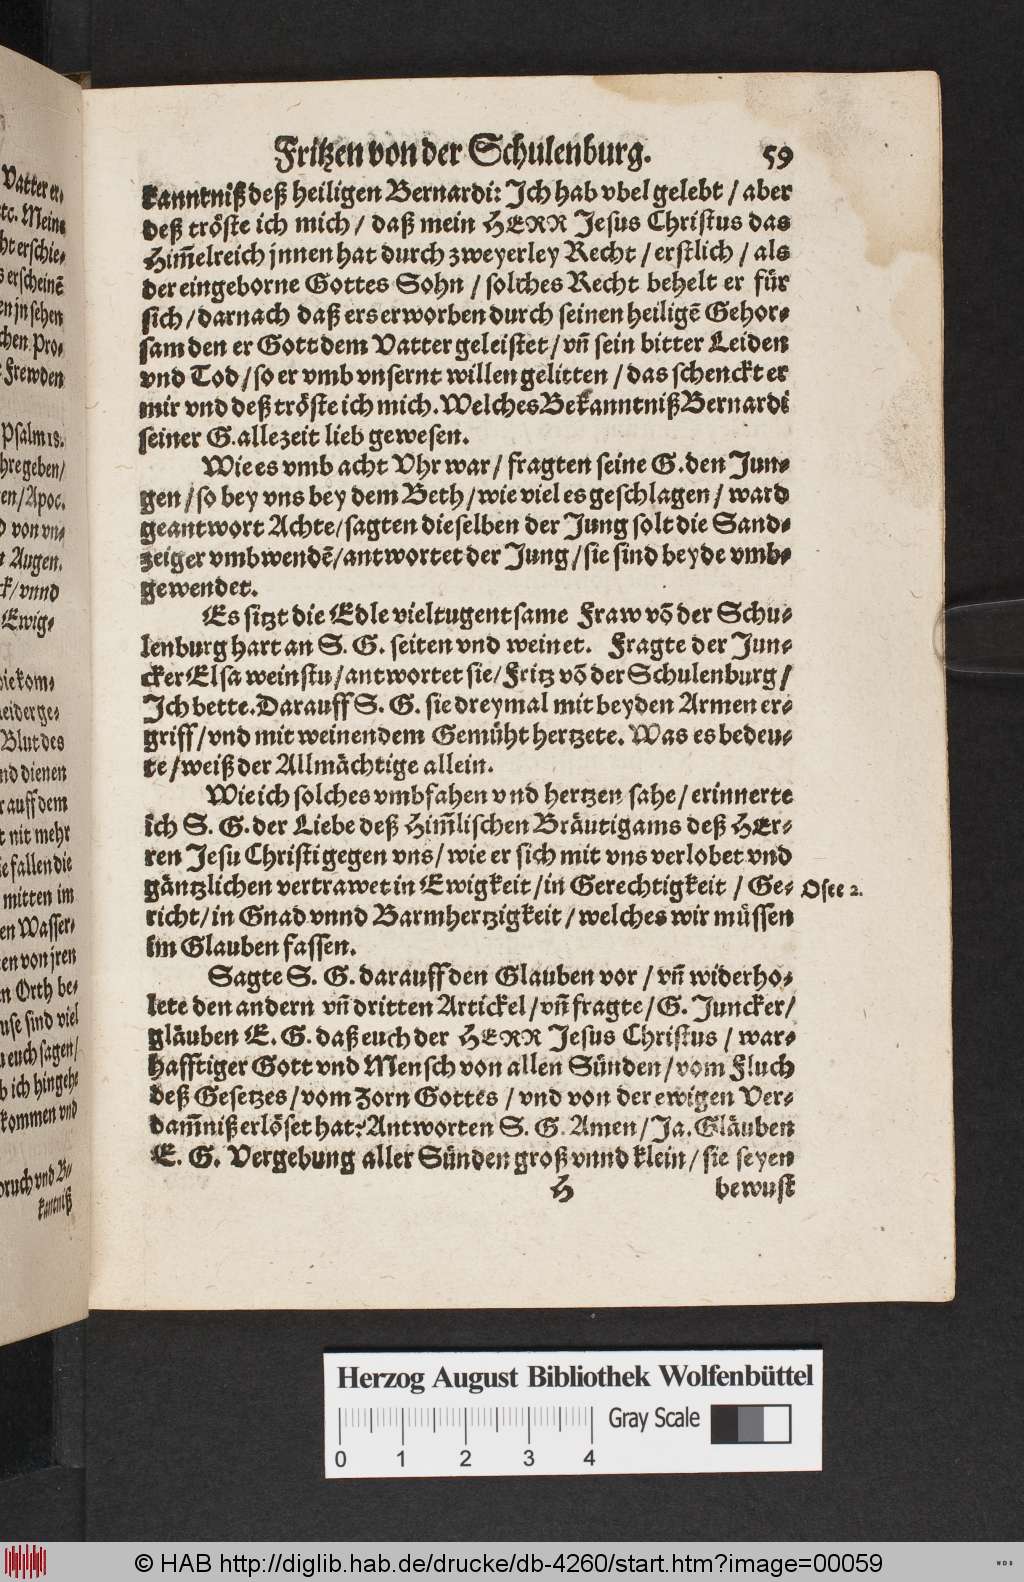 Vatter er-
etc. Meine
erschie-
erscheinē
en jn sehen
chen Pro-
Frewden
Psalm 18.
hre geben/
en/Apoc.
von vn-
Augen.
ck/vnnd
Ewig-
Blut des
nd dienen
auff dem
nit mehr
fallen die
mitten im
en Wasser-
en von jren
Orth be-
use sind viel
euch sagen/
b ich hingehe
kommen vnd
pruch vnd Be-
kantniß
Fritzen von der Schulenburg. 59
kanntniß deß heiligen Bernardi: Ich hab vbel gelebt / aber
deß tröste ich mich / daß mein HERR Jesus Christus das
Him̄elreich jnnen hat durch zweyerley Recht / erstlich / als
der eingeborne Gottes Sohn / solches Recht behelt er für
sich / darnach daß ers erworben durch seinen heiligē Gehor-
sam den er Gott dem Vatter geleistet / vn̄ sein bitter Leiden
vnd Tod / so er vmb vnsernt willen gelitten / das schenckt er
mir vnd deß tröste ich mich. Welches Bekanntniß Bernardi
seiner G. allezeit lieb gewesen.
Wie es vmb acht Vhr war / fragten seine G. den Jun-
gen / so bey vns bey dem Beth / wie viel es geschlagen / ward
geantwort Achte / sagten dieselben der Jung solt die Sand-
zeiger vmbwendē / antwortet der Jung / sie sind beyde vmb-
gewendet.
Es sitzt die Edle vieltugentsame Fraw vō der Schu-
lenburg hart an S. G. seiten vnd weinet. Fragte der Jun-
cker Elsa weinstu / antwortet sie / Fritz vō der Schulenburg /
Ich bette. Darauff S. G. sie dreymal mit beyden Armen er-
griff / vnd mit weinendem Gemüht hertzete. Was es bedeu-
te / weiß der Allmächtige allein.
Wie ich solches vmbfahen vnd hertzen sahe / erinnerte
ich S. G. der Liebe deß Him̄lischen Bräutigams deß HEr-
ren Jesu Christi gegen vns / wie er sich mit vns verlobet vnd
gäntzlichen vertrawet in Ewigkeit / in Gerechtigkeit / Ge- Osee 2.
richt / in Gnad vnnd Barmhertzigkeit / welches wir müssen
im Glauben fassen.
Sagte S. G. darauff den Glauben vor / vn̄ widerho-
lete den andern vn̄ dritten Artickel / vn̄ fragte / G. Juncker /
gläuben E. G. daß euch der HERR Jesus Christus / war-
hafftiger Gott vnd Mensch von allen Sünden / vom Fluch
deß Gesetzes / vom Zorn Gottes / vnd von der ewigen Ver-
dam̄niß erlöset hat? Antworten S. G. Amen / Ja. Gläuben
E. G. Vergebung aller Sünden groß vnnd klein / sie seyen
H bewust
Herzog August Bibliothek Wolfenbüttel
Gray Scale
0 1 2 3 4
© HAB http://diglib.hab.de/drucke/db-4260/start.htm?image=00059